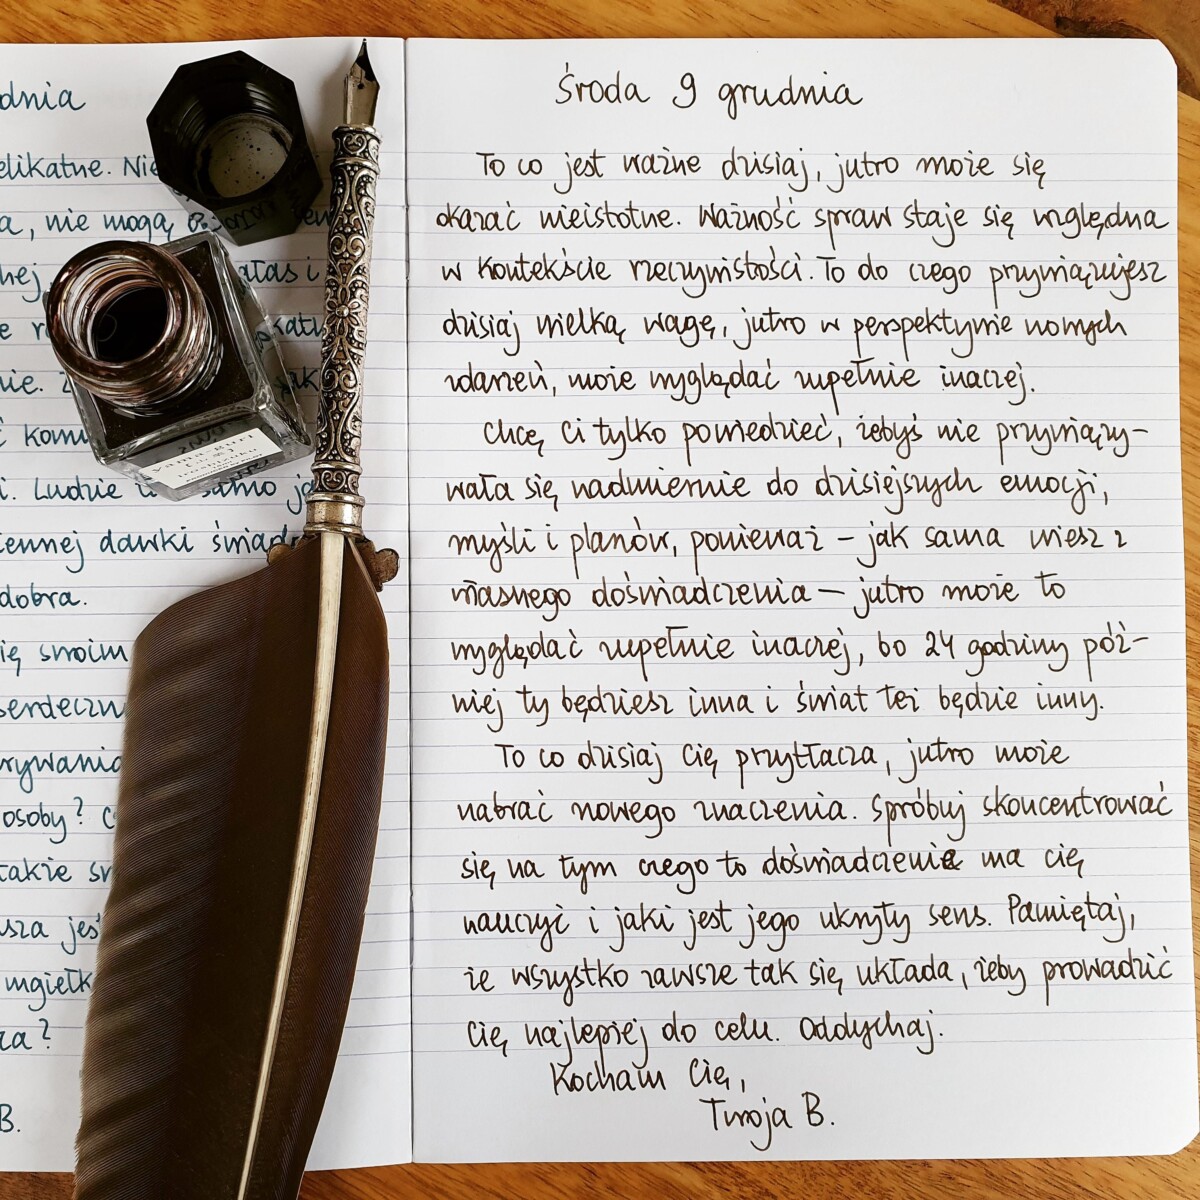 dnia
elikatne. Nie
a, nie mogą
hej,
ałas i
nie.
jak
ć komu
i. Ludzie
samo
iennej dawki świad
dobra.
ię swoim
serdeczn
rywania
osoby?
takie
sza jest
mgiełk
za?
B.
yama-guri
Środa 9 grudnia
To co jest ważne dzisiaj, jutro może się
okazać nieistotne. Ważność spraw staje się względna
w kontekście rzeczywistości. To do czego przywiązujesz
dzisiaj wielką wagę, jutro w perspektywie nowych
zdarzeń, może wyglądać zupełnie inaczej.
Chcę Ci tylko powiedzieć, żebyś nie przywiązy-
wała się nadmiernie do dzisiejszych emocji,
myśli i planów, ponieważ – jak sama wiesz z
własnego doświadczenia – jutro może to
wyglądać zupełnie inaczej, bo 24 godziny póź-
niej ty będziesz inna i świat też będzie inny.
To co dzisiaj Cię przytłacza, jutro może
nabrać nowego znaczenia. Spróbuj skoncentrować
się na tym czego to doświadczenie ma cię
nauczyć i jaki jest jego ukryty sens. Pamiętaj,
że wszystko zawsze tak się układa, żeby prowadzić
Cię najlepiej do celu. Oddychaj.
Kocham Cię,
Twoja B.